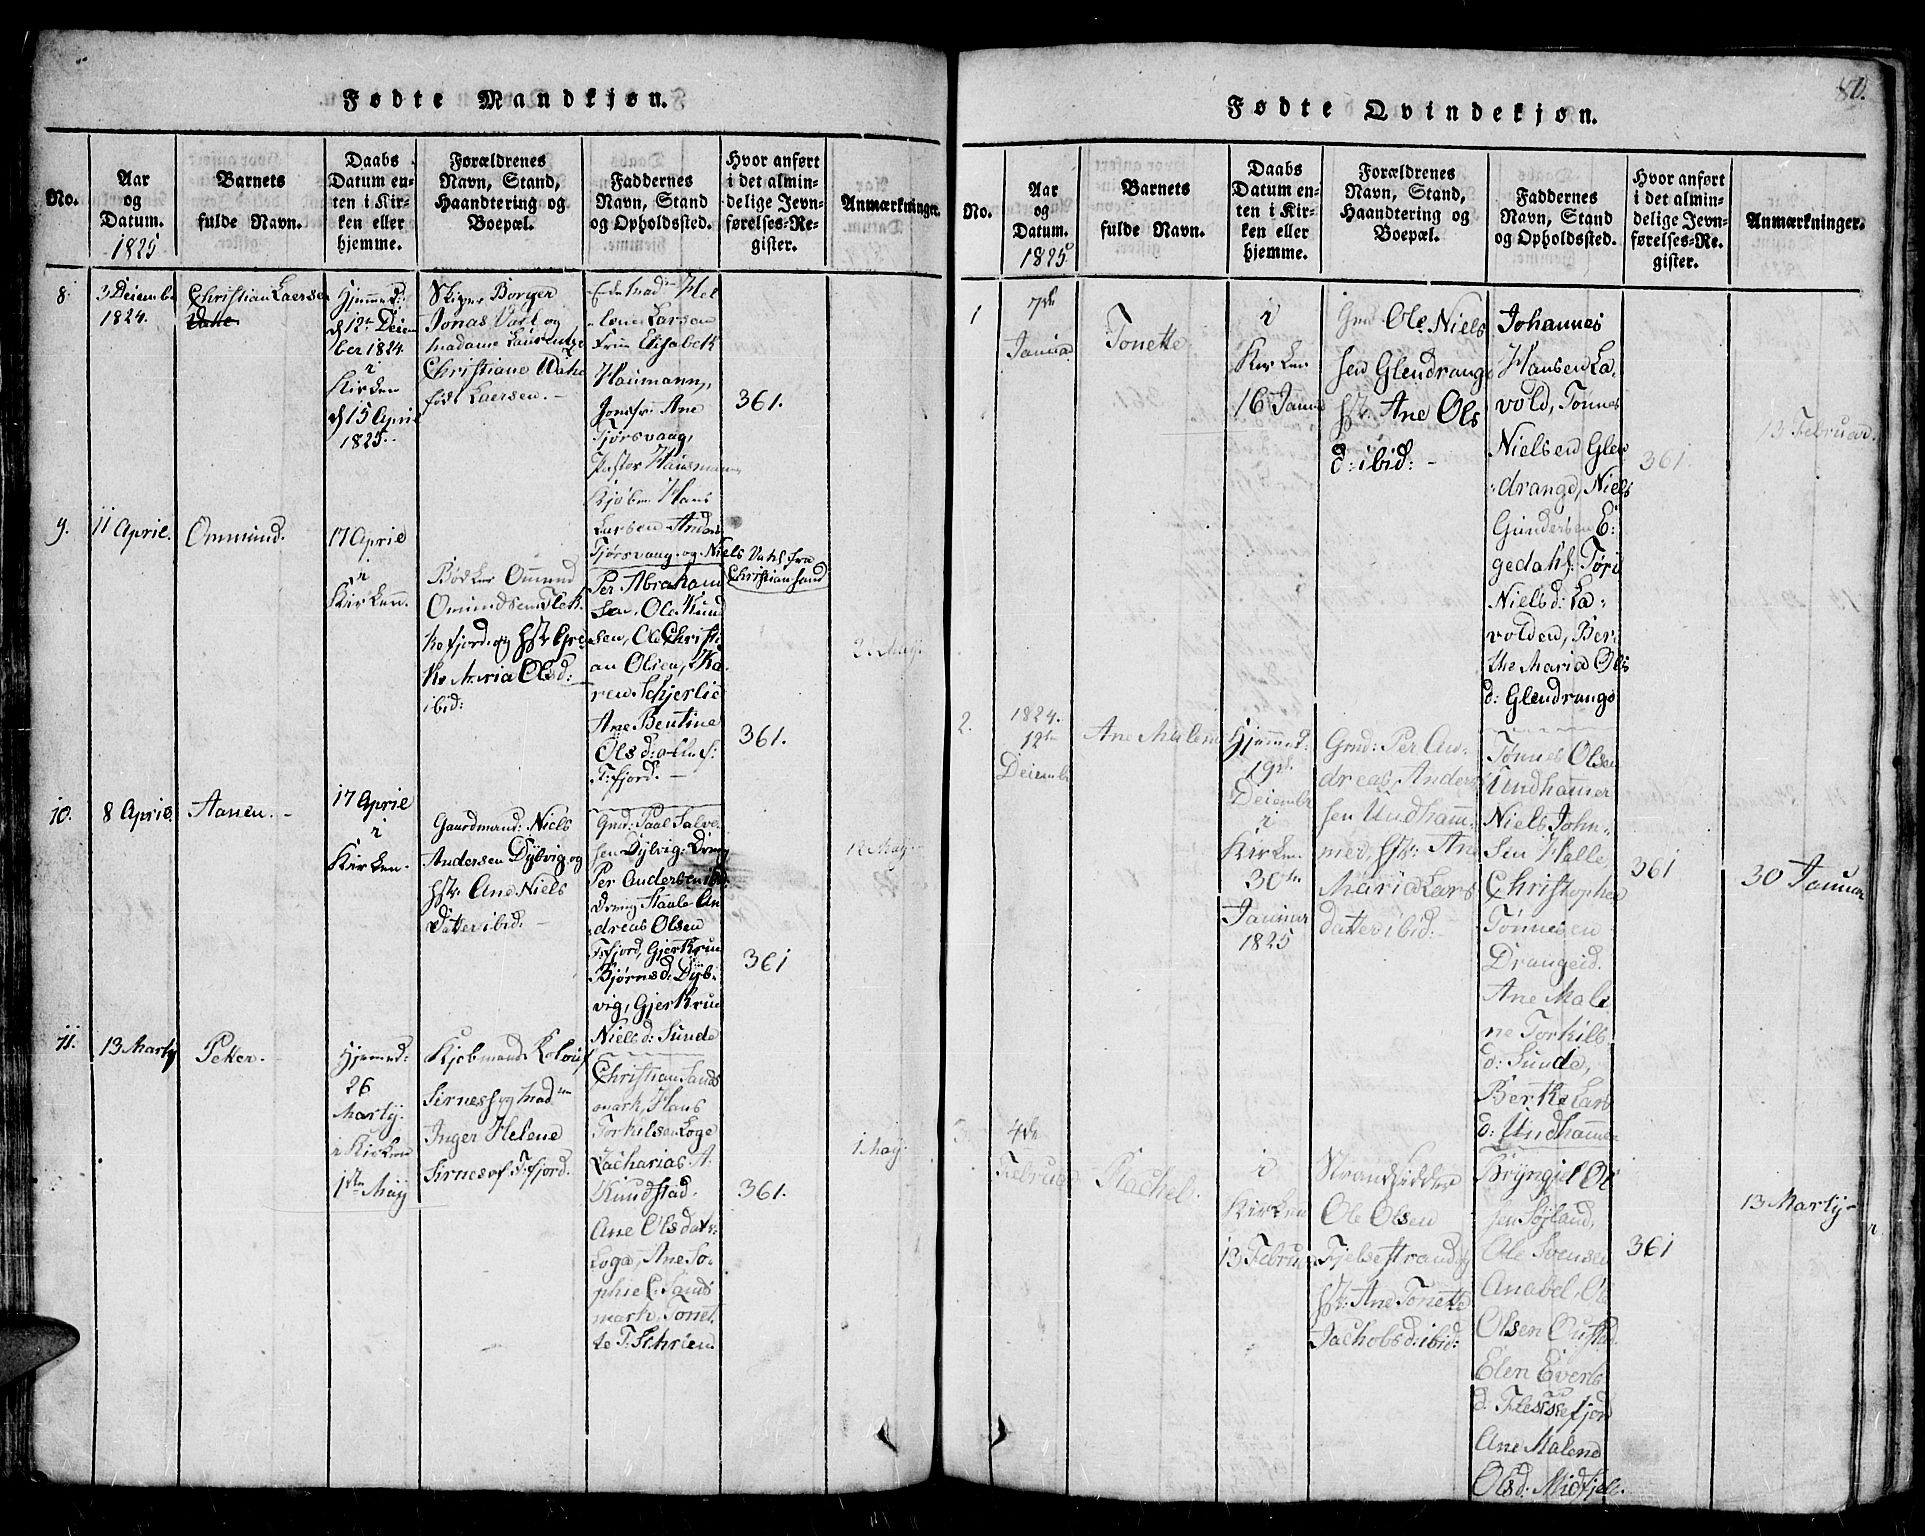 Fødte Mandkjøn.
No.
Aar
og
Datum.
1825
Barnets
fulde Navn.
Daabs
Datum en-
ten i Kir-
ken eller
hjemme.
Forældrenes
Navn, Stand,
Haandtering og
Boepæl.
Faddernes
Navn, Stand
og Opholdssted.
Hvor anført
i det almin-
delige Jevn-
førelses-Re-
gister.
Anmærkninger.
8.
3 Decembr
1824.
Christian Laersen
Hjemmed:
d 12te Decem
ber 1824.
i
Kirken
d 15 April
1825.
Skipper Borger
Jonas Vatl og
Madame Laurentze
Christiane
født Laersen.
Hel
lene Larsen
Elisabeth
Haumann,
Jomfru Ane
Tjørsvaag,
Pastor Hausmann
Kjøbm Hans
Larsen
Tjørsvaag og Niels Vahl fra
Christiansand
361.
9.
11 April.
Ommund.
17 April
i
Kirken.
Bødker Ommund
Omundsen Flek
kefjord og Hstr
Maria Olsd:
ibid:
Per Abraham
sen, Ole Knud
sen, Ole Christi
an Olsen, Ka
ren Schjerlie
Ane Bentine
Olsd: alle f:
F:fjord.
361.
2 May.
10.
8 April.
Aanen.
17 April
i
Kirken.
Gaardmand: Niels
Andersen Dybvig og
Hstr Ane Niels
Datter ibid.
Gmd: Paal Salve
sen Dybvig: Dreng
Per Andersen ibid
Dreng Staale An
dreas Olsen
F:fjord, Gjertrun
Bjørnsd: Dyb
vig, Gjertrun
Nielsd: Sunde
361
12 May
11.
13 Martÿ
Petter.
Hjemmed:
26
Martÿ.
i Kirken
1ste Maÿ
Kjøbmand
Sirnes og Madm
Inger Helene
Sirnes af F:fjord.
Christian Sands
mark, Hans
Torkilsen Loge
Zacharias A.
Knudstad.
Ane Olsdatr
Loge, Ane So
phie C. Sands
mark, Tonet
te T.
361.
1 May.
80.
Fødte Qvindekjøn.
No.
Aar
og
Datum.
1825
Barnets
fulde Navn.
Daabs
Datum en-
ten i Kir-
ken eller
hjemme.
Forældrenes
Navn, Stand,
Haandtering og
Boepæl.
Faddernes
Navn, Stand
og Opholdssted.
Hvor anført
i det almin-
delige Jevn-
førelses-Re-
gister.
Anmærkninger.
1
7de
Januar
Tonette
i
Kirken
16 Janu
Gmd Ole Niels
sen Glendrange
Hstr Ane Ols
d: ibid:
Johannes
Hansen La
vold, Tønnes
Nielsen Glen
drange, Niels
Gundersen E:
gedahl: Tori
Nielsd: La
volden, Ber
the Maria Ols
d: Glendrange
361
13 Februar.
2.
1824.
12te
Decemb
Ane Malene
Hjemmed:
19de
Decembr
i
Kirken
30te
Januar
1825
Gmd: Per An
dreas Ander
sen Undham
mer, Hstr: Ane
Maria Lars
datter ibid:
Tønnes Olsen
Undhamer
Niels John
sen Halle,
Christopher
Tønnesen
Drangeid.
Ane Male
ne Torkils
d: Sunde,
Berthe Lars
d: Undhammer
361
30 Januar
3.
4de
Februar
Rachel.
i
Kirken
13 Februar
Strandsidder
Ole Olsen
Fjelsestrand og
Hstr: Ane Tonette
Jachobsd: ibid:
Bryngjel Ol
sen Søyland,
Ole Svensen
Anabel, Ole
Olsen
Elen Everts
d. Flekkefjord
Ane Malene
Olsd. Midfjell.
361
13 Martÿ